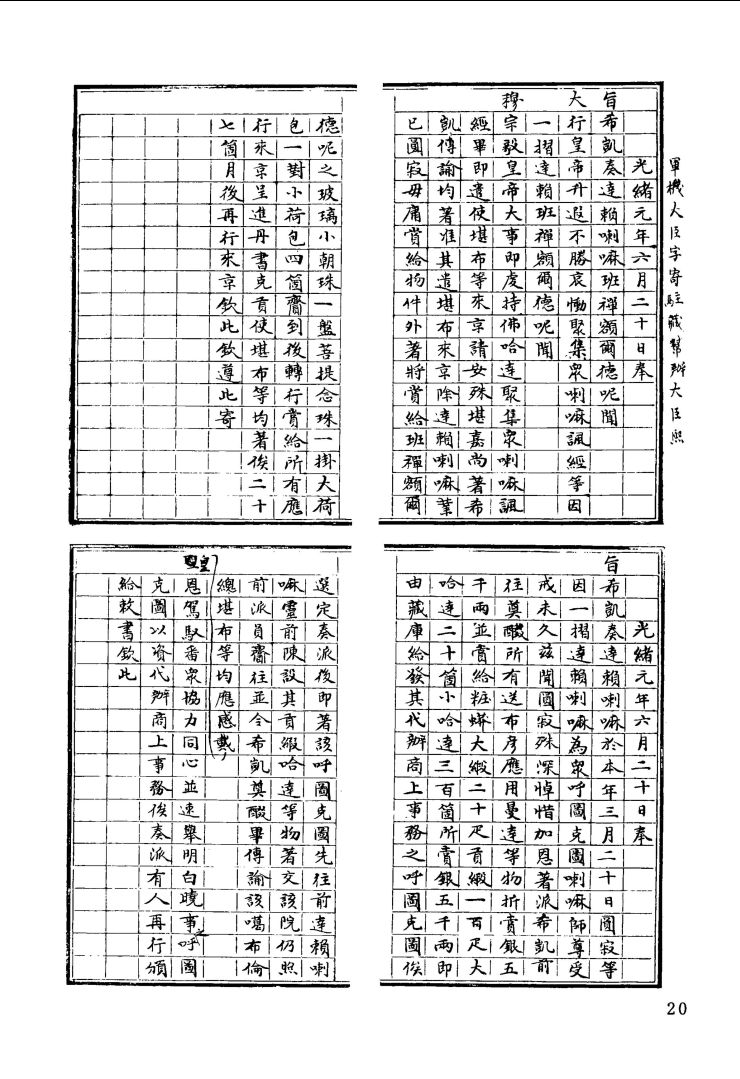 軍機大臣字寄駐藏幫辦大臣熙
光緒元年六月二十日奉
旨希凱奏達賴喇嘛班禪額爾德呢聞
大行皇帝升遐不勝哀慟聚集眾喇嘛諷經等因
一摺達賴班禪額爾德呢聞
穆宗毅皇帝大事即虔持佛哈達聚集眾喇嘛諷
經畢即遣使堪布等來京請安殊堪嘉尚著希
凱傳諭均著准其遣堪布來京除達賴喇嘛業
已圓寂毋庸賞給物件外著將賞給班禪額爾
德呢之玻璃小朝珠一盤菩提念珠一掛大荷
包一對小荷包四箇齎到後轉行賞給所有應
行來京呈進丹書克貢使堪布等均著俟二十
七箇月後再行來京欽此欽遵此寄
光緒元年六月二十日奉
旨希凱奏達賴喇嘛於本年三月二十日圓寂等
因一摺達賴喇嘛為眾呼圖克圖喇嘛師尊受
戒未久茲聞圓寂殊深悼惜加恩著派希凱前
往奠醊所有送布彥應用曼達等物折賞銀五
千兩並賞給粧蟒大緞二十疋貢緞一百疋大
哈達二十箇小哈達三百箇所賞銀五千兩即
由藏庫給發其代辦商上事務之呼圖克圖俟
選定奏派後即著該呼圖克圖先往前達賴喇
嘛靈前陳設其貢緞哈達等物著交該院仍照
前派員齎往並令希凱奠醊畢傳諭該噶布倫
總堪布等均應感戴
皇恩駕馭番眾協力同心並速舉明白曉事之呼圖
克圖以資代辦商上事務俟奏派有人再行頒
給敕書欽此
20